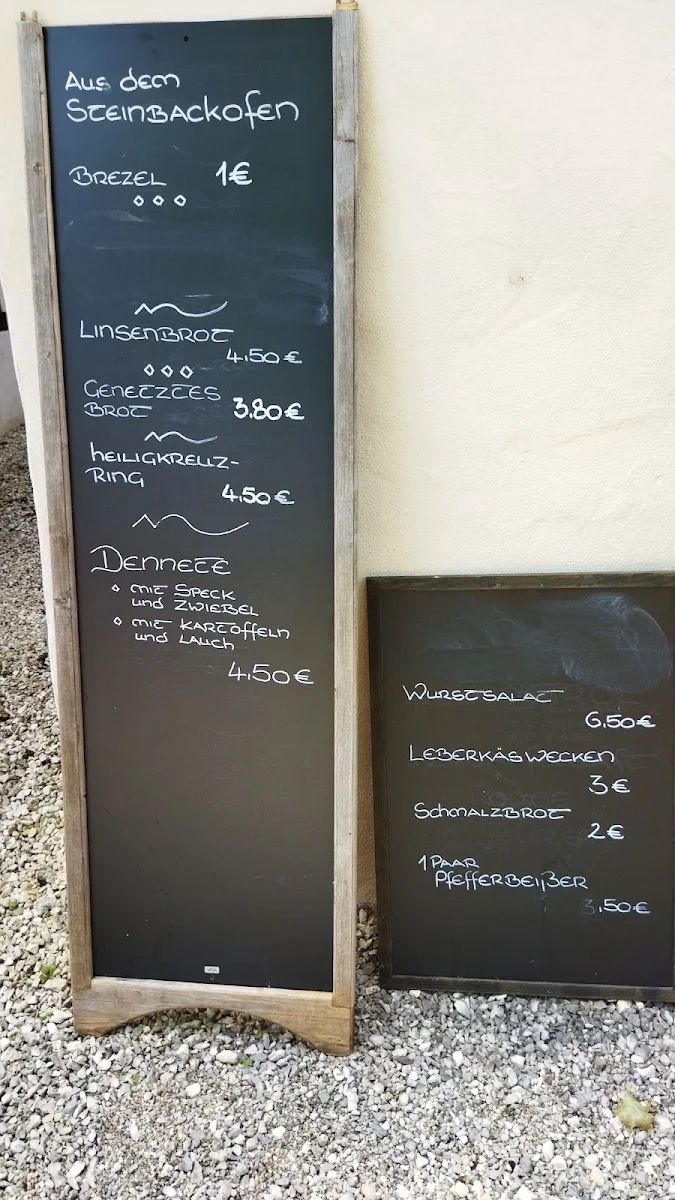 Aus dem
Steinbackofen
Brezel 1€
Linsenbrot
4.50€
Genetztes
Brot 3.80€
Heiligkreuz-
Ring
4.50€
Dennete
◇ mit Speck
und Zwiebel
◇ mit Kartoffeln
und Lauch
4.50€
Wurstsalat
6.50€
Leberkäswecken
3€
Schmalzbrot
2€
1 Paar
Pfefferbeißer
3.50€